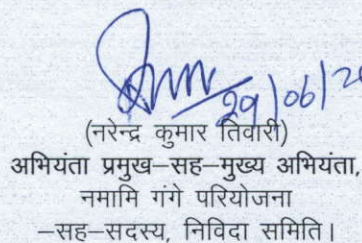 29/06/20
(नरेन्द्र कुमार तिवारी)
अभियंता प्रमुख–सह–मुख्य अभियंता,
नमामि गंगे परियोजना
–सह–सदस्य, निविदा समिति।